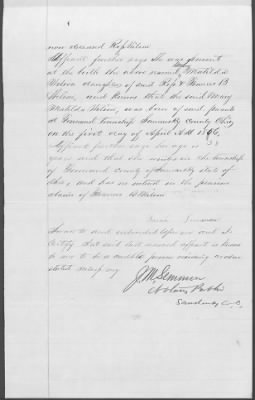 now deceased Rep Wilson
Affiant further says he was present
at the birth the above named Matilda
Wilson daughter of said Rep & Frances B
Wilson, and knows that the said Mary
Matilda Wilson, was born of said parents
at Townsend Township Sandusky County Ohio
on the first day of April AD
Affiant further says he age is 38
years and that she resides in the township
of Townsend County of Sandusky State of
Ohio, and has no interest in the pension
claim of Frances B Wilson
Sworn to and subscribed before me and I
certify that said affiant is known
to me to be a credible person
J. M. Lemmon
Notary Public
Sandusky Co. O.